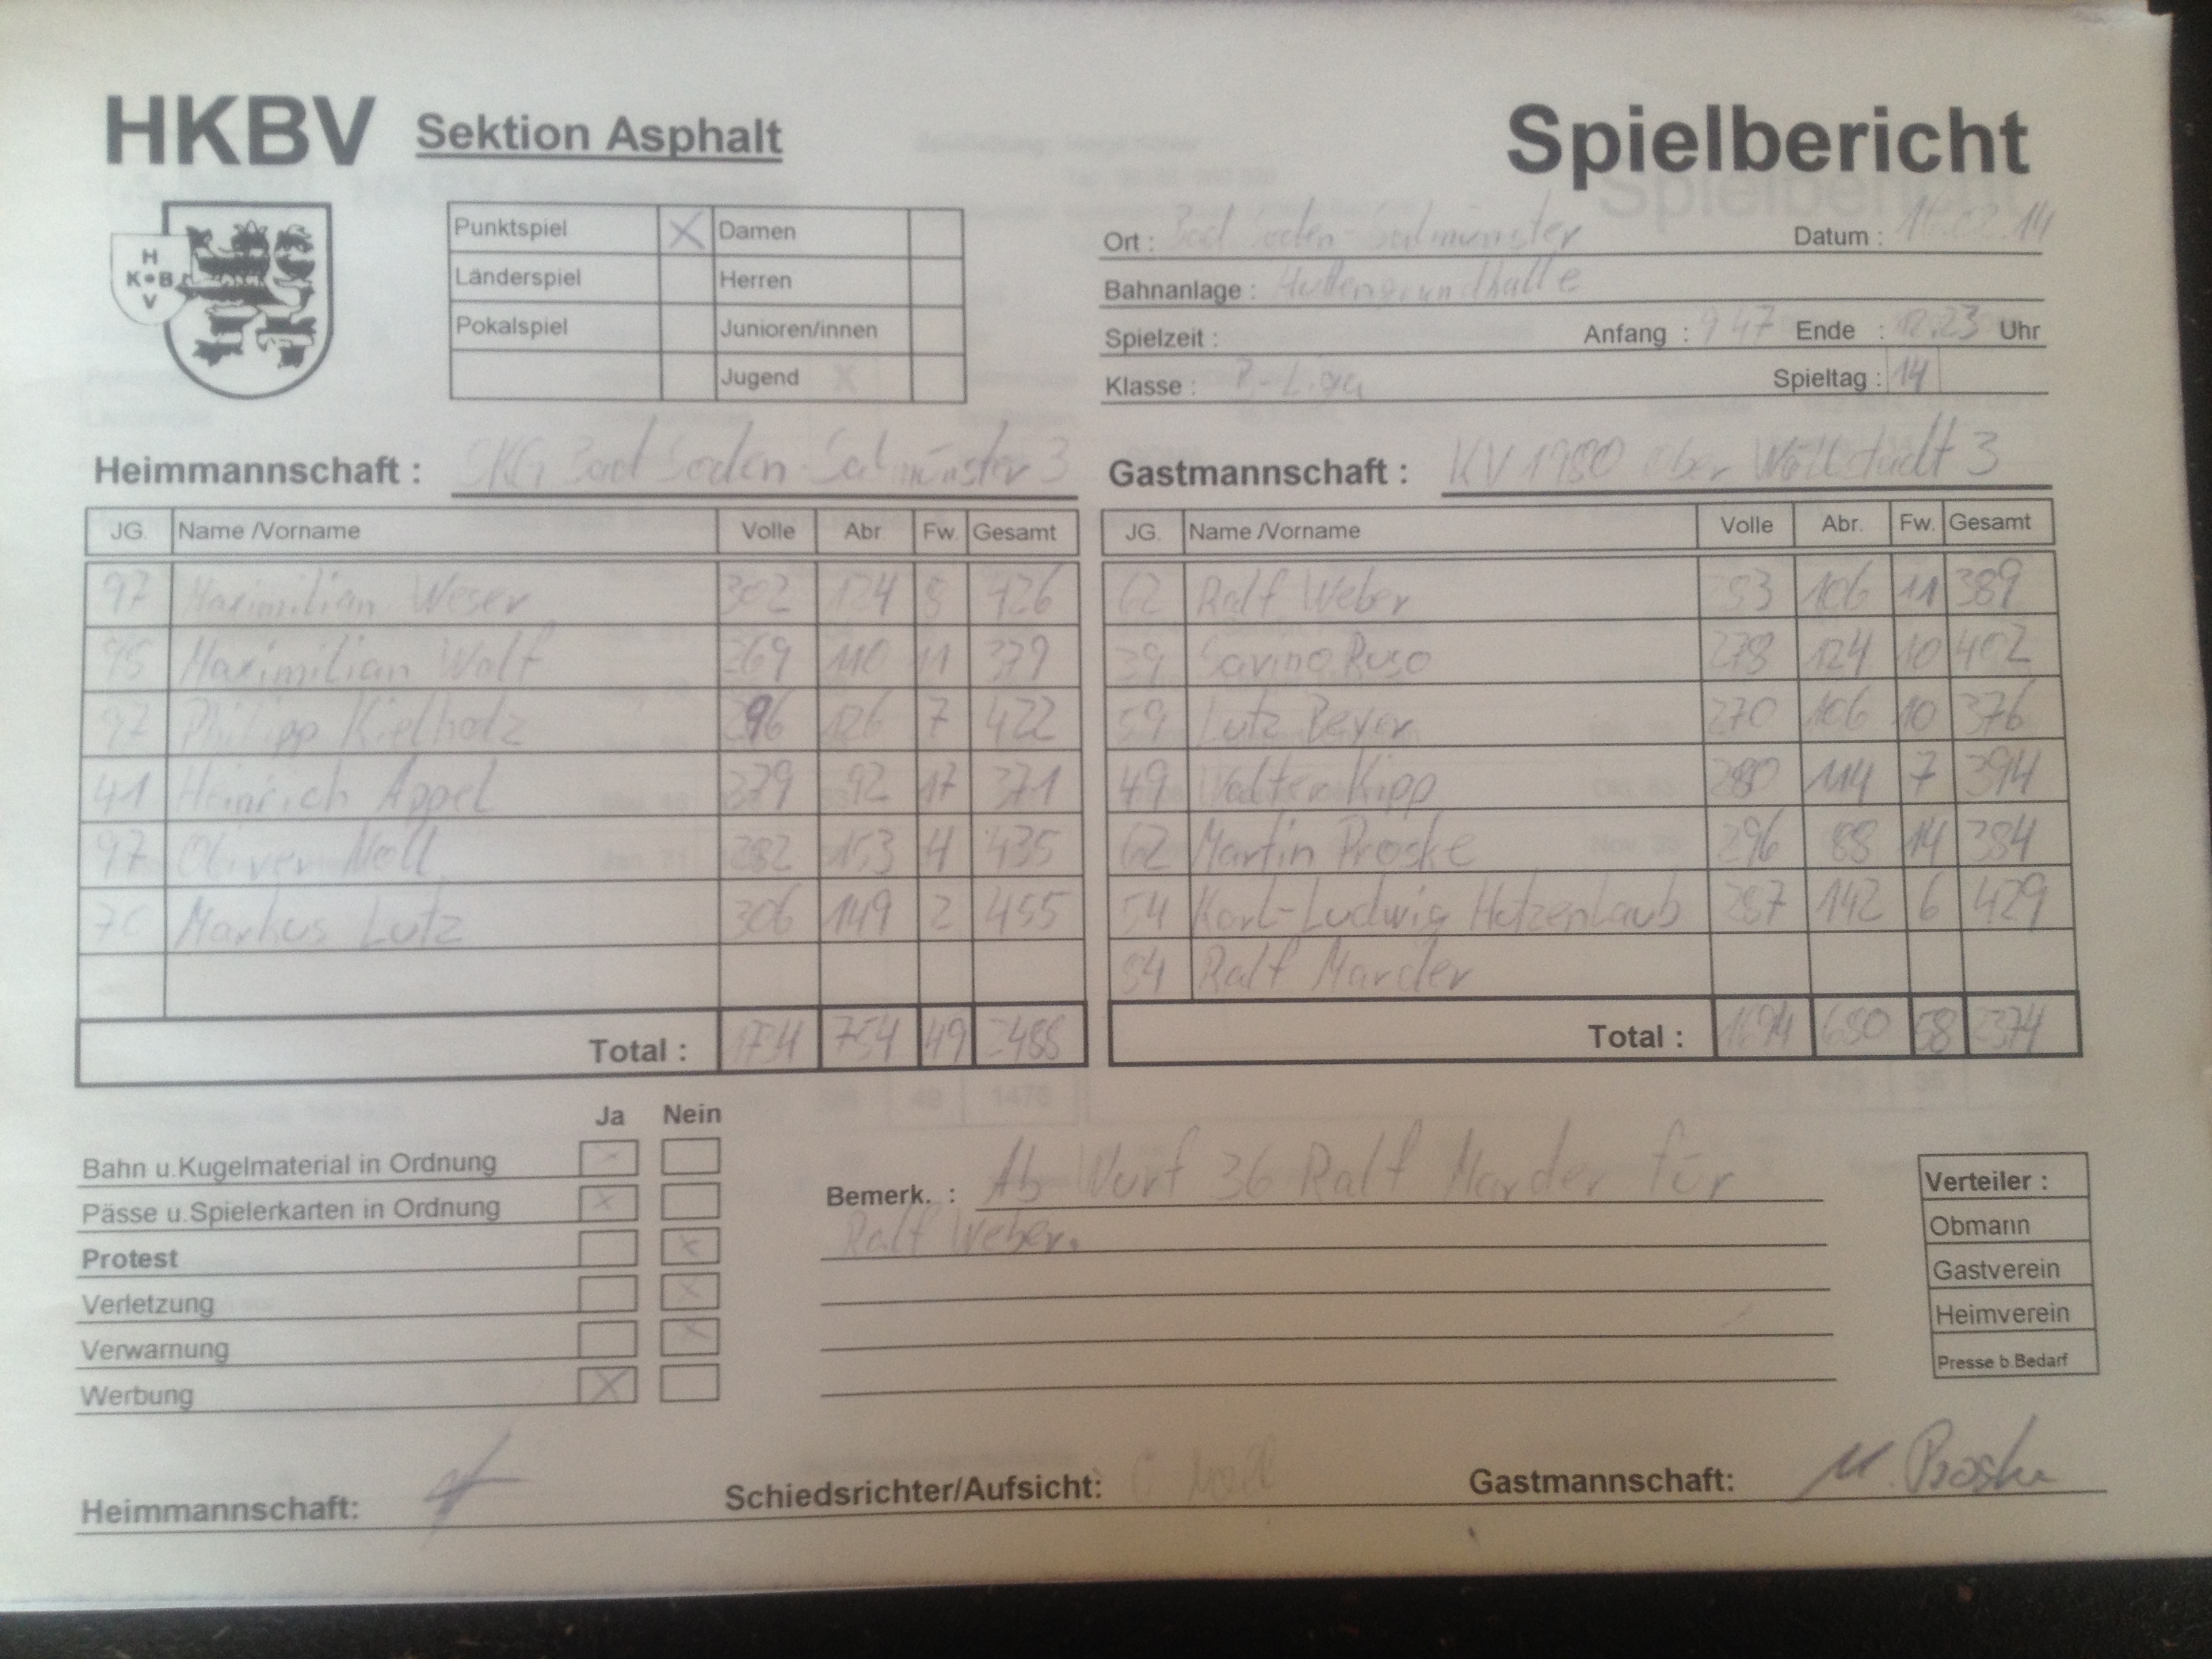 HKBV Sektion Asphalt Spielbericht
H
K•B
V
Punktspiel X Damen
Länderspiel Herren
Pokalspiel Junioren/innen
Jugend X
Ort : Bad Soden-Salmünster Datum : 16.02.14
Bahnanlage : Huttengrundhalle
Spielzeit : Anfang : 9 47 Ende : 12.23 Uhr
Klasse : B-Liga Spieltag : 14
Heimmannschaft : SKG Bad Soden-Salmünster 3
JG. Name /Vorname Volle Abr Fw. Gesamt
97 Maximilian Weser 302 124 8 426
95 Maximilian Wolf 269 110 11 379
97 Philipp Kielholz 296 126 7 422
41 Heinrich Appel 279 92 17 371
97 Oliver Noll 282 153 4 435
70 Markus Lutz 306 149 2 455
Total : 1734 754 49 2488
Gastmannschaft : KV 1980 Ober Wöllstadt 3
JG. Name /Vorname Volle Abr. Fw. Gesamt
62 Ralf Weber 283 106 11 389
39 Savino Ruso 278 124 10 402
59 Lutz Beyer 270 106 10 376
49 Walter Kipp 280 114 7 394
62 Martin Proske 296 88 14 384
54 Karl-Ludwig Hotzenlaub 287 142 6 429
54 Ralf Marder
Total : 1694 680 58 2374
Ja Nein
Bahn u.Kugelmaterial in Ordnung X
Pässe u.Spielerkarten in Ordnung X
Protest X
Verletzung X
Verwarnung X
Werbung X
Bemerk. : Ab Wurf 36 Ralf Marder für
Ralf Weber.
Verteiler :
Obmann
Gastverein
Heimverein
Presse b.Bedarf
Heimmannschaft: Schiedsrichter/Aufsicht: Noll Gastmannschaft: M. Proske